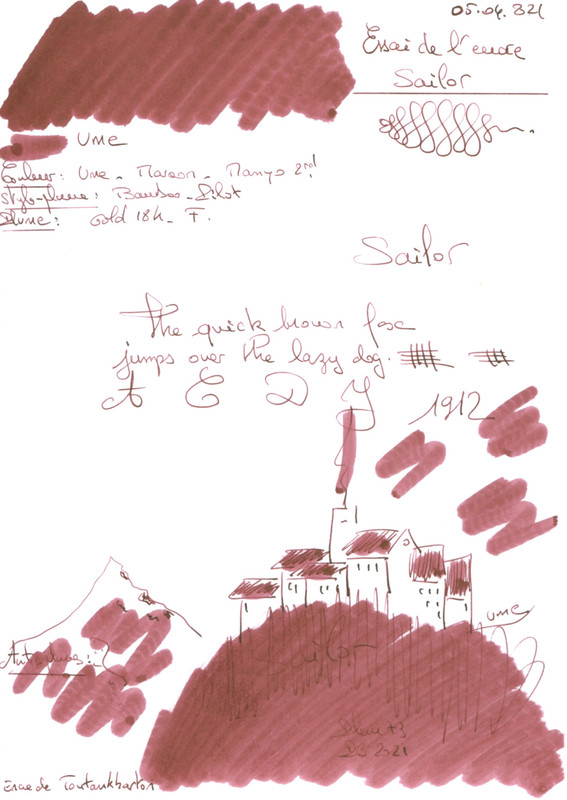 05.04.321
Essai de l'encre
Sailor
Ume
Couleur: Ume - Marron - Manyo 2nd
Stylo-plume: Bamboo - Pilot
Plume: Gold 18k - F.
Sailor
The quick brown fox
jumps over the lazy dog.
A C D Y
1912
ume
Sailor
Autres
03 2021
Encre de Toutankharton